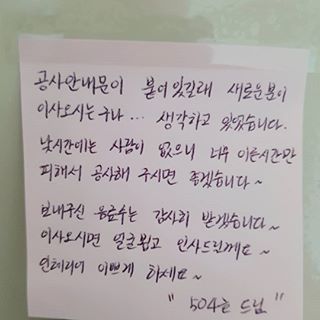 공사안내문이 붙어있길래 새로운분이
이사오시는구나... 생각하고 있었습니다.
낮시간에는 사람이 없으니 너무 이른시간만
피해서 공사해 주시면 좋겠습니다~
보내주신 음료수는 감사히 받겠습니다~
이사오시면 얼굴뵙고 인사드릴께요~
인테리어 이쁘게 하세요~
"504호 드림"